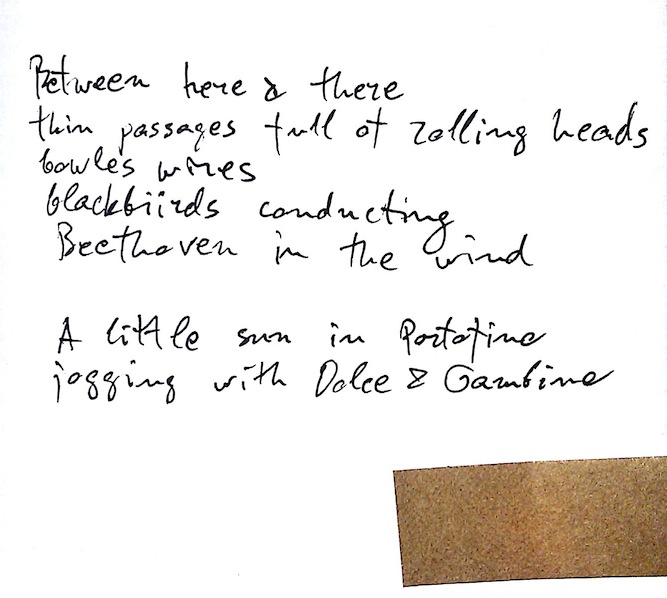 Between here & there
thin passages full of rolling heads
bowles wires
blackbiirds conducting
Beethoven in the wind
A little sun in Portofino
jogging with Dolce & Gambino